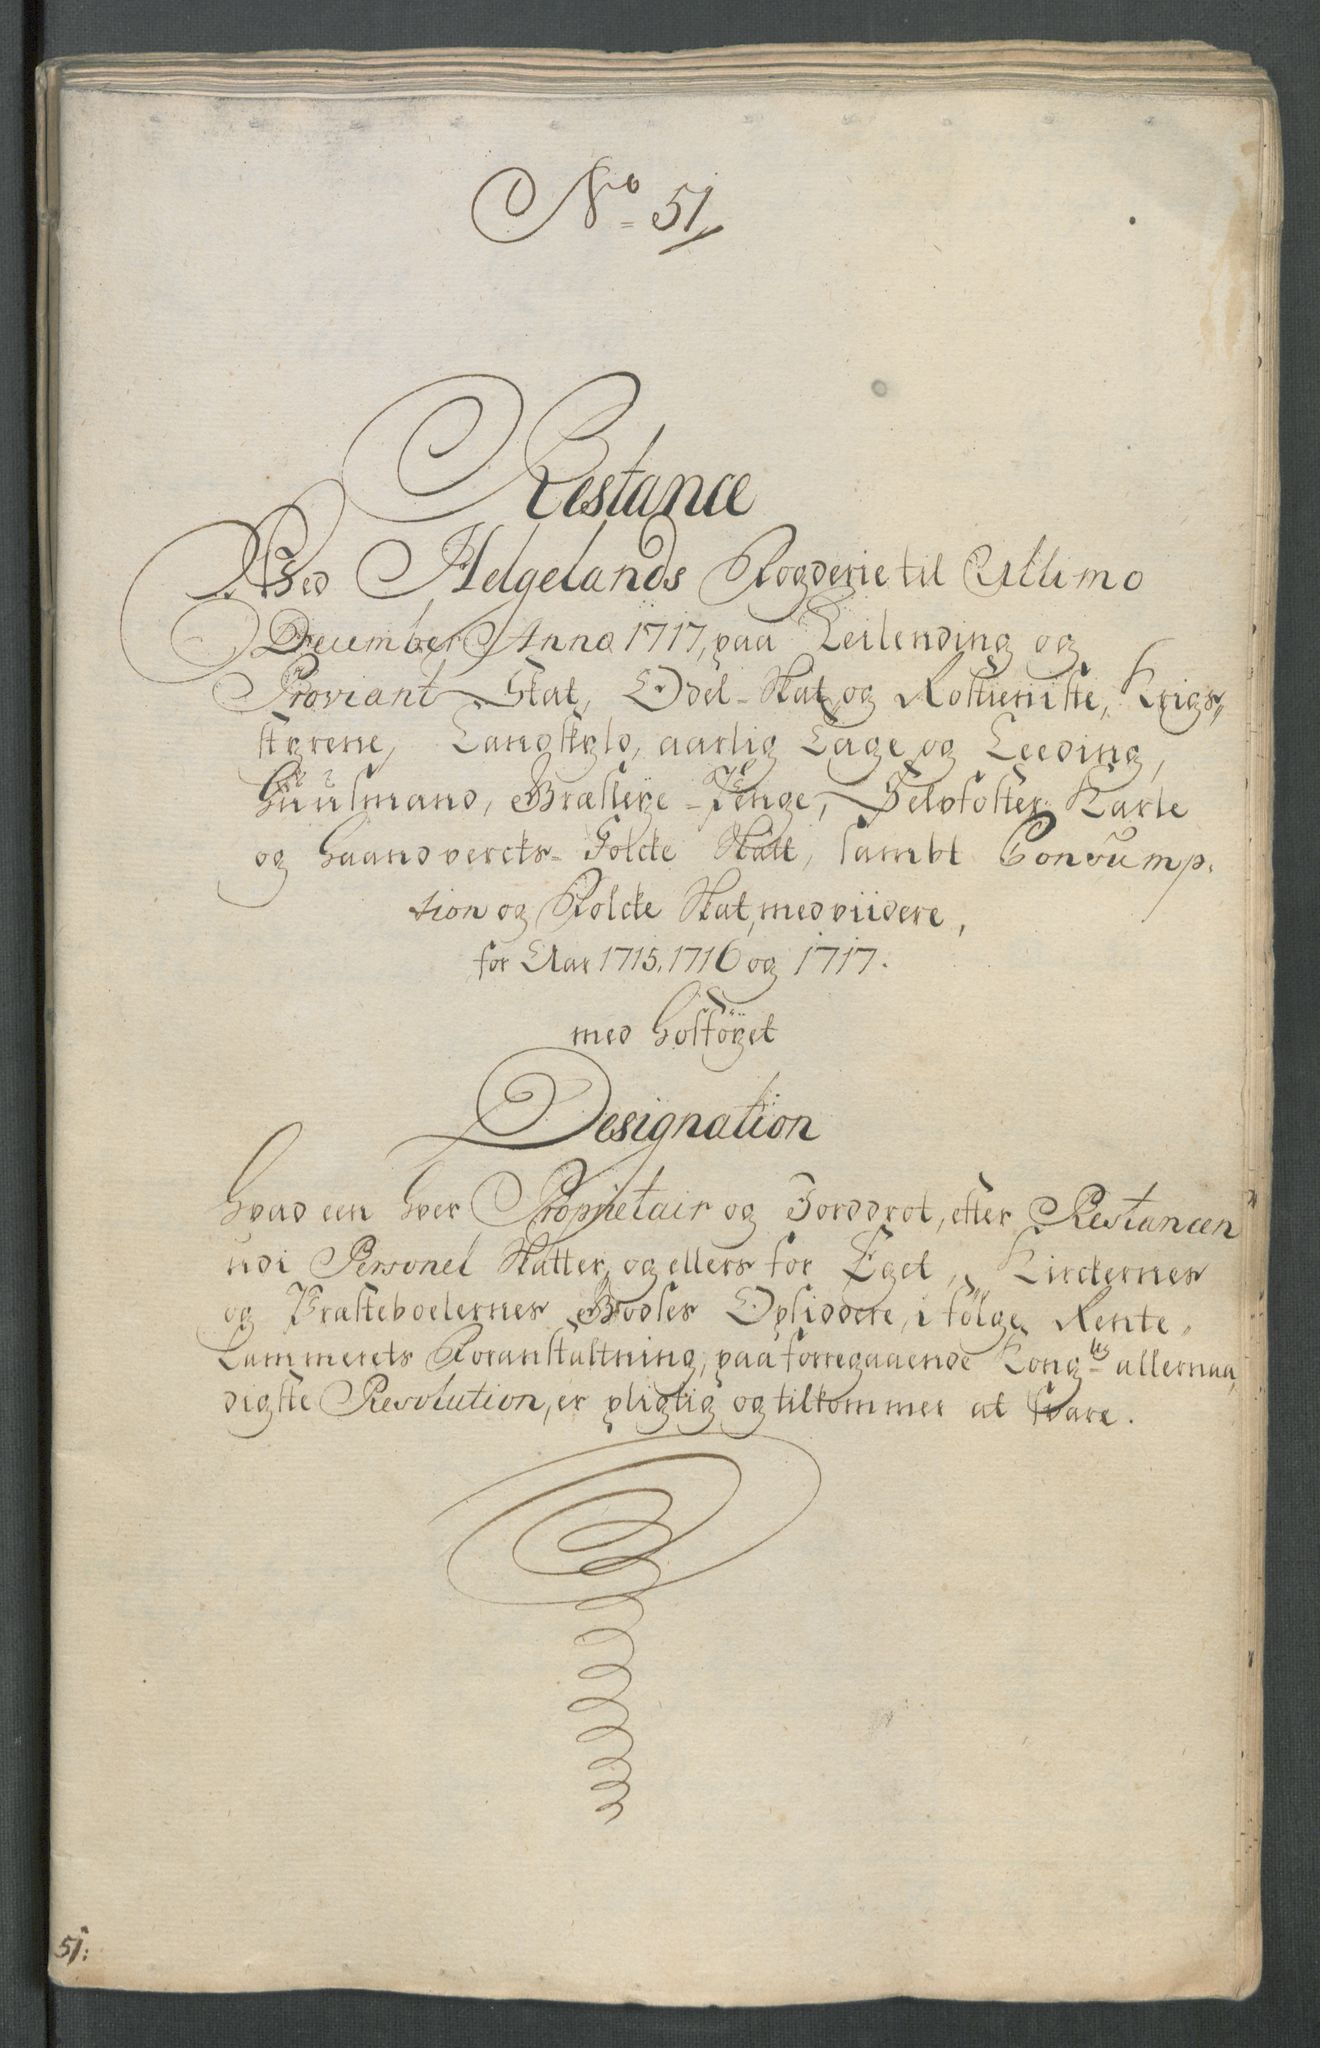 No 51
Restance
Wed Helgelands Fogderie til Ultimo
December Anno 1717, paa Leilending og
Proviant Skat, Odel-Skat og Rostieniste, Krigs,
styrene, Landskyld, aarlig Tage og Leeding,
Huusmand, Græsleye-Penge, Selvfoster Karle
og Haandvercks-Folcke Skatt, sambt Consump-
tion og Folcke Skat, med viidere,
for Aar 1715. 1716 og 1717.
med hosföyet
Designation
hvad een hver Proprietair og Jorddrot, efter Restancen
udi Personel Skatter, og ellers for Eget, Kirckernes
og Præsteboelernes Godses Opsiddere, i fölge Rente-
Cammerets Foranstaltning, paa forregaaende Kongls allernaa,
digste Resolution, er pligtig og tilkommer at svare.
51: